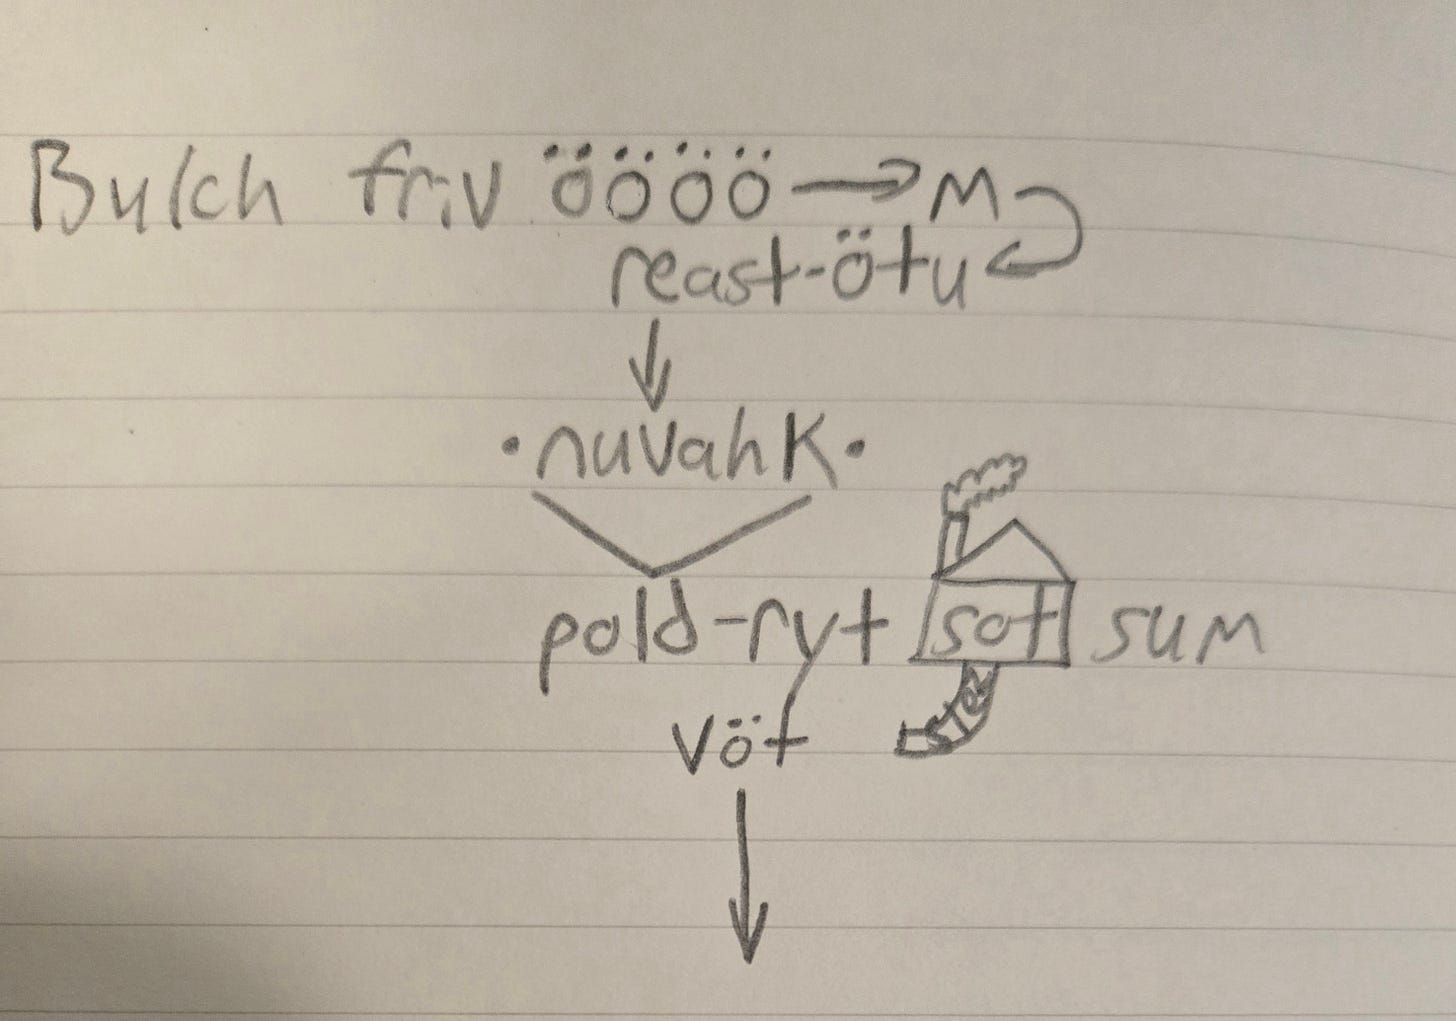 Bulch friv öööö → M
reast-ötu
nuvahK
pold-ryt sot sum
vöt